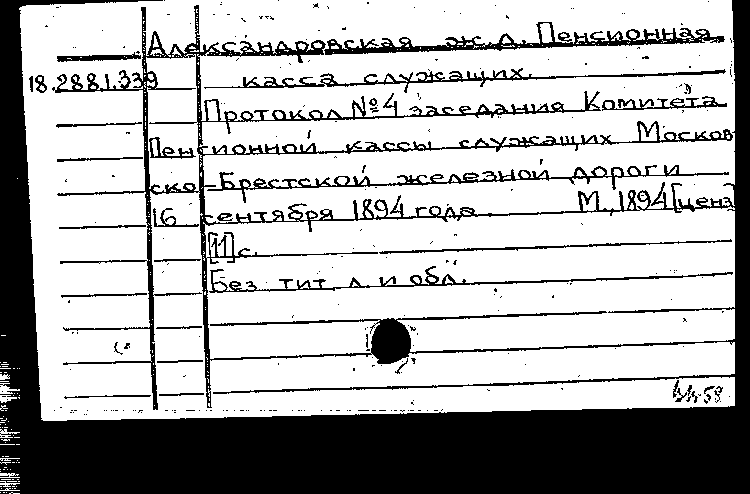 Александровская ж. д. Пенсионная
18.288.1.339 касса служащих.
Протокол №4 заседания Комитета
Пенсионной кассы служащих Москов
ско-Брестской железной дороги
16 сентября 1894 года. М., 1894 [ценз]
[11] с.
Без тит. л. и обл.